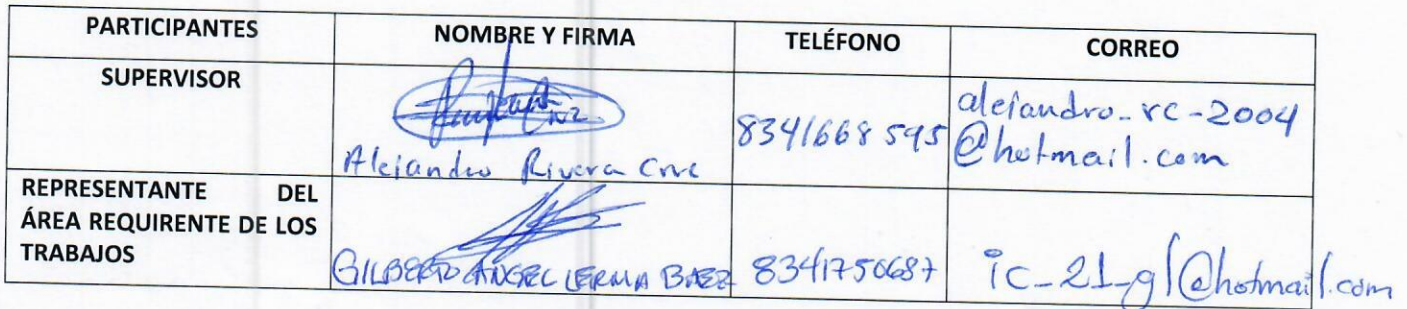 PARTICIPANTES NOMBRE Y FIRMA TELÉFONO CORREO
SUPERVISOR
alejandro_rc-2004
8341668595 @hotmail.com
Alejandro Rivera Cruz
REPRESENTANTE DEL
ÁREA REQUIRENTE DE LOS
TRABAJOS
GILBERTO ANGEL LERMA BAEZ 8341750687 ic_21_gl@hotmail.com